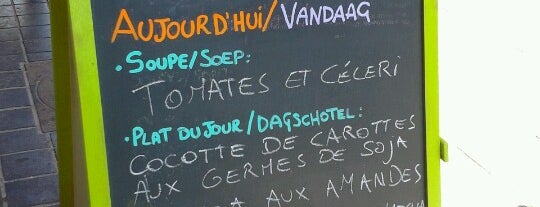 AUJOURD'HUI/VANDAAG
•SOUPE/SOEP:
TOMATES ET CÉLERI
•PLAT DU JOUR/DAGSCHOTEL:
COCOTTE DE CAROTTES
AUX GERMES DE SOJA
AUX AMANDES